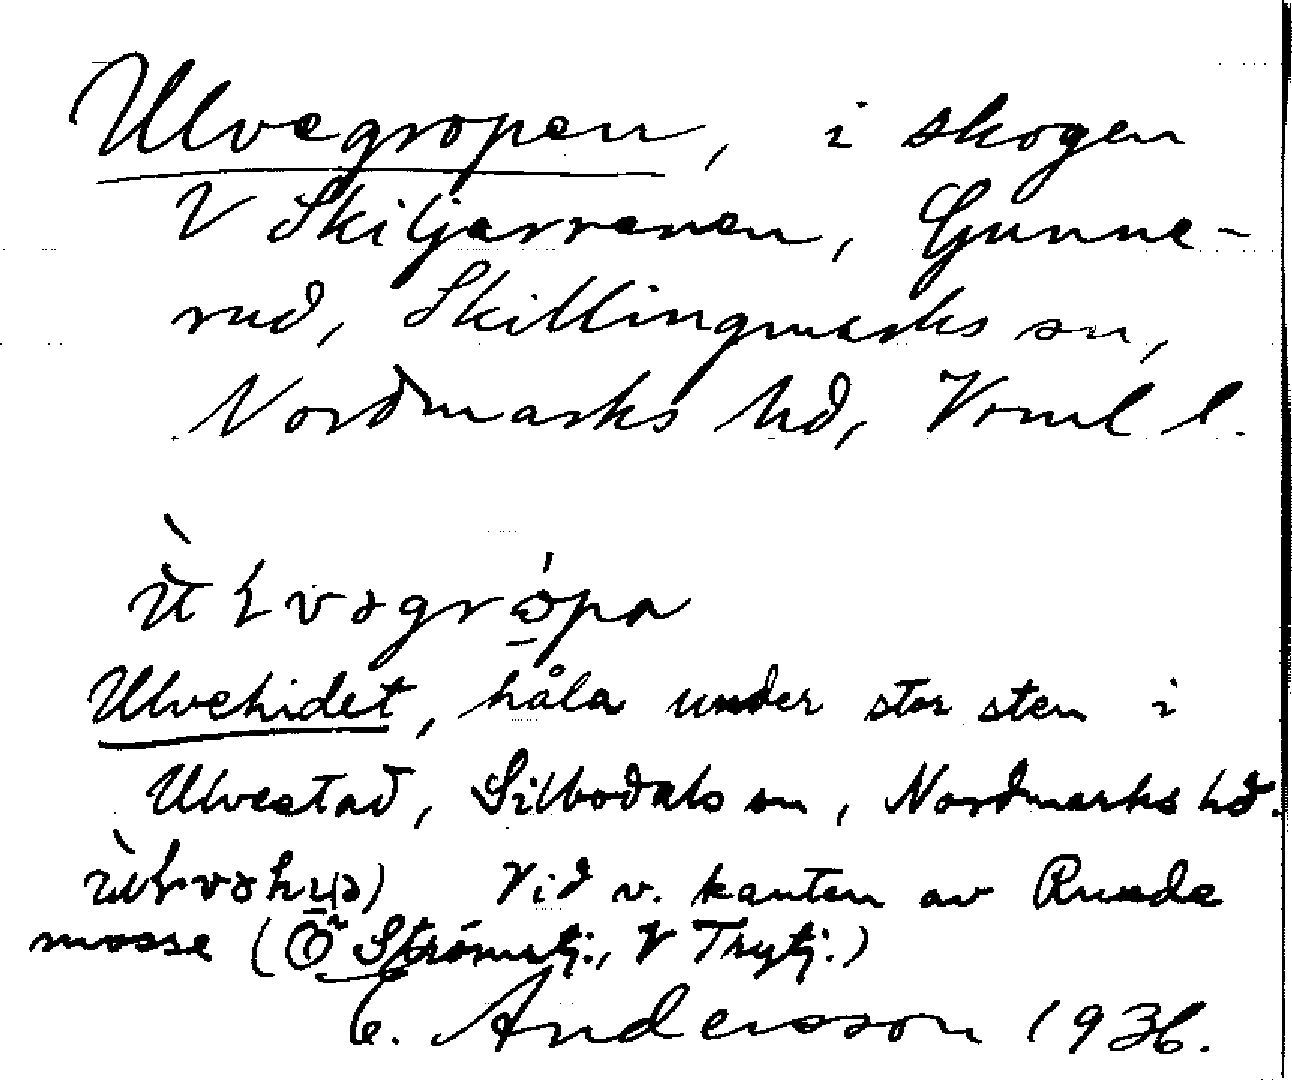 Ulvegropen, i skogen
V Skiljarranen, Gunne-
rud, Skillingmarks sn,
Nordmarks hd, Vrml l.
Ulvehidet, håla under stor sten i
Ulvestad, Silbodals sn, Nordmarks hd.
Vid v. kanten av Ruede
mosse (Ö Strömstj., V Trytj.)
E. Andersson 1936.